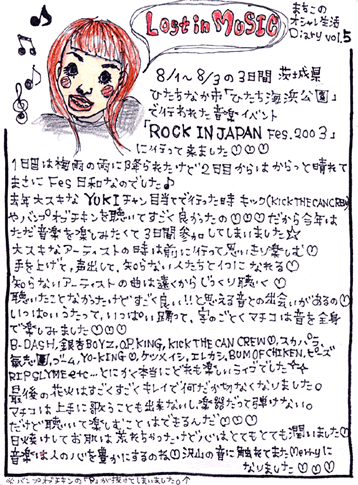 Lost in MUSIC
まちこの
オシャレ生活
Diary vol.5
8/1〜8/3の3日間 茨城県
ひたちなか市「ひたち海浜公園」
で行われた音楽イベント
「ROCK IN JAPAN Fes. 2003」
に行って来ました♡♡♡
1日目は梅雨の雨に降られたけど2日目からはからっと晴れて
まさにFes日和なのでした♪
去年大スキなYUKIチャン目当てで行った時キック(KICK THE CAN CREW)
やバンプオブチキンを聴いてすごく良かったの♡♡♡だから今年は
ただ音楽を楽しみたくて3日間参加してしまいました☆
大スキなアーティストの時は前に行って思いきり楽しむ♡
手を上げて、声出して、知らない人たちと1つになれる♡
知らないアーティストの曲は遠くからじっくり聴く♡
聴いたことなかったけどすごく良い!!と思える音との出会いがあるの♡
いっぱいうたって、いっぱい踊って、字のごとくマチコは音を全身
で楽しみました♡♡♡
B-DASH, 銀杏BOYZ, QP.KING, KICK THE CAN CREW♡, スカパラ,
氣志團, ゴーム, YO-KING♡, ケツメイシ, エレカシ, BUMP OF CHIKEN, ピーズ
RIPSLYME etc…とにかく本当にどれも楽しいライヴでした
最後の花火はすごくすごくキレイで何だか切なくなりました。
マチコは上手に歌うことも出来ないし、楽器だって弾けない。
だけど聴いて楽しむことはできるんだ♡♡♡
日焼けしてお肌は荒れちゃったけど心はとてもとても潤いました♡
音楽は人の心を豊かにするのね♡沢山の音に触れてまたMerryに
なりました♡♡♡
※バンプオブチキンの「P」が抜けてしまいました。↑